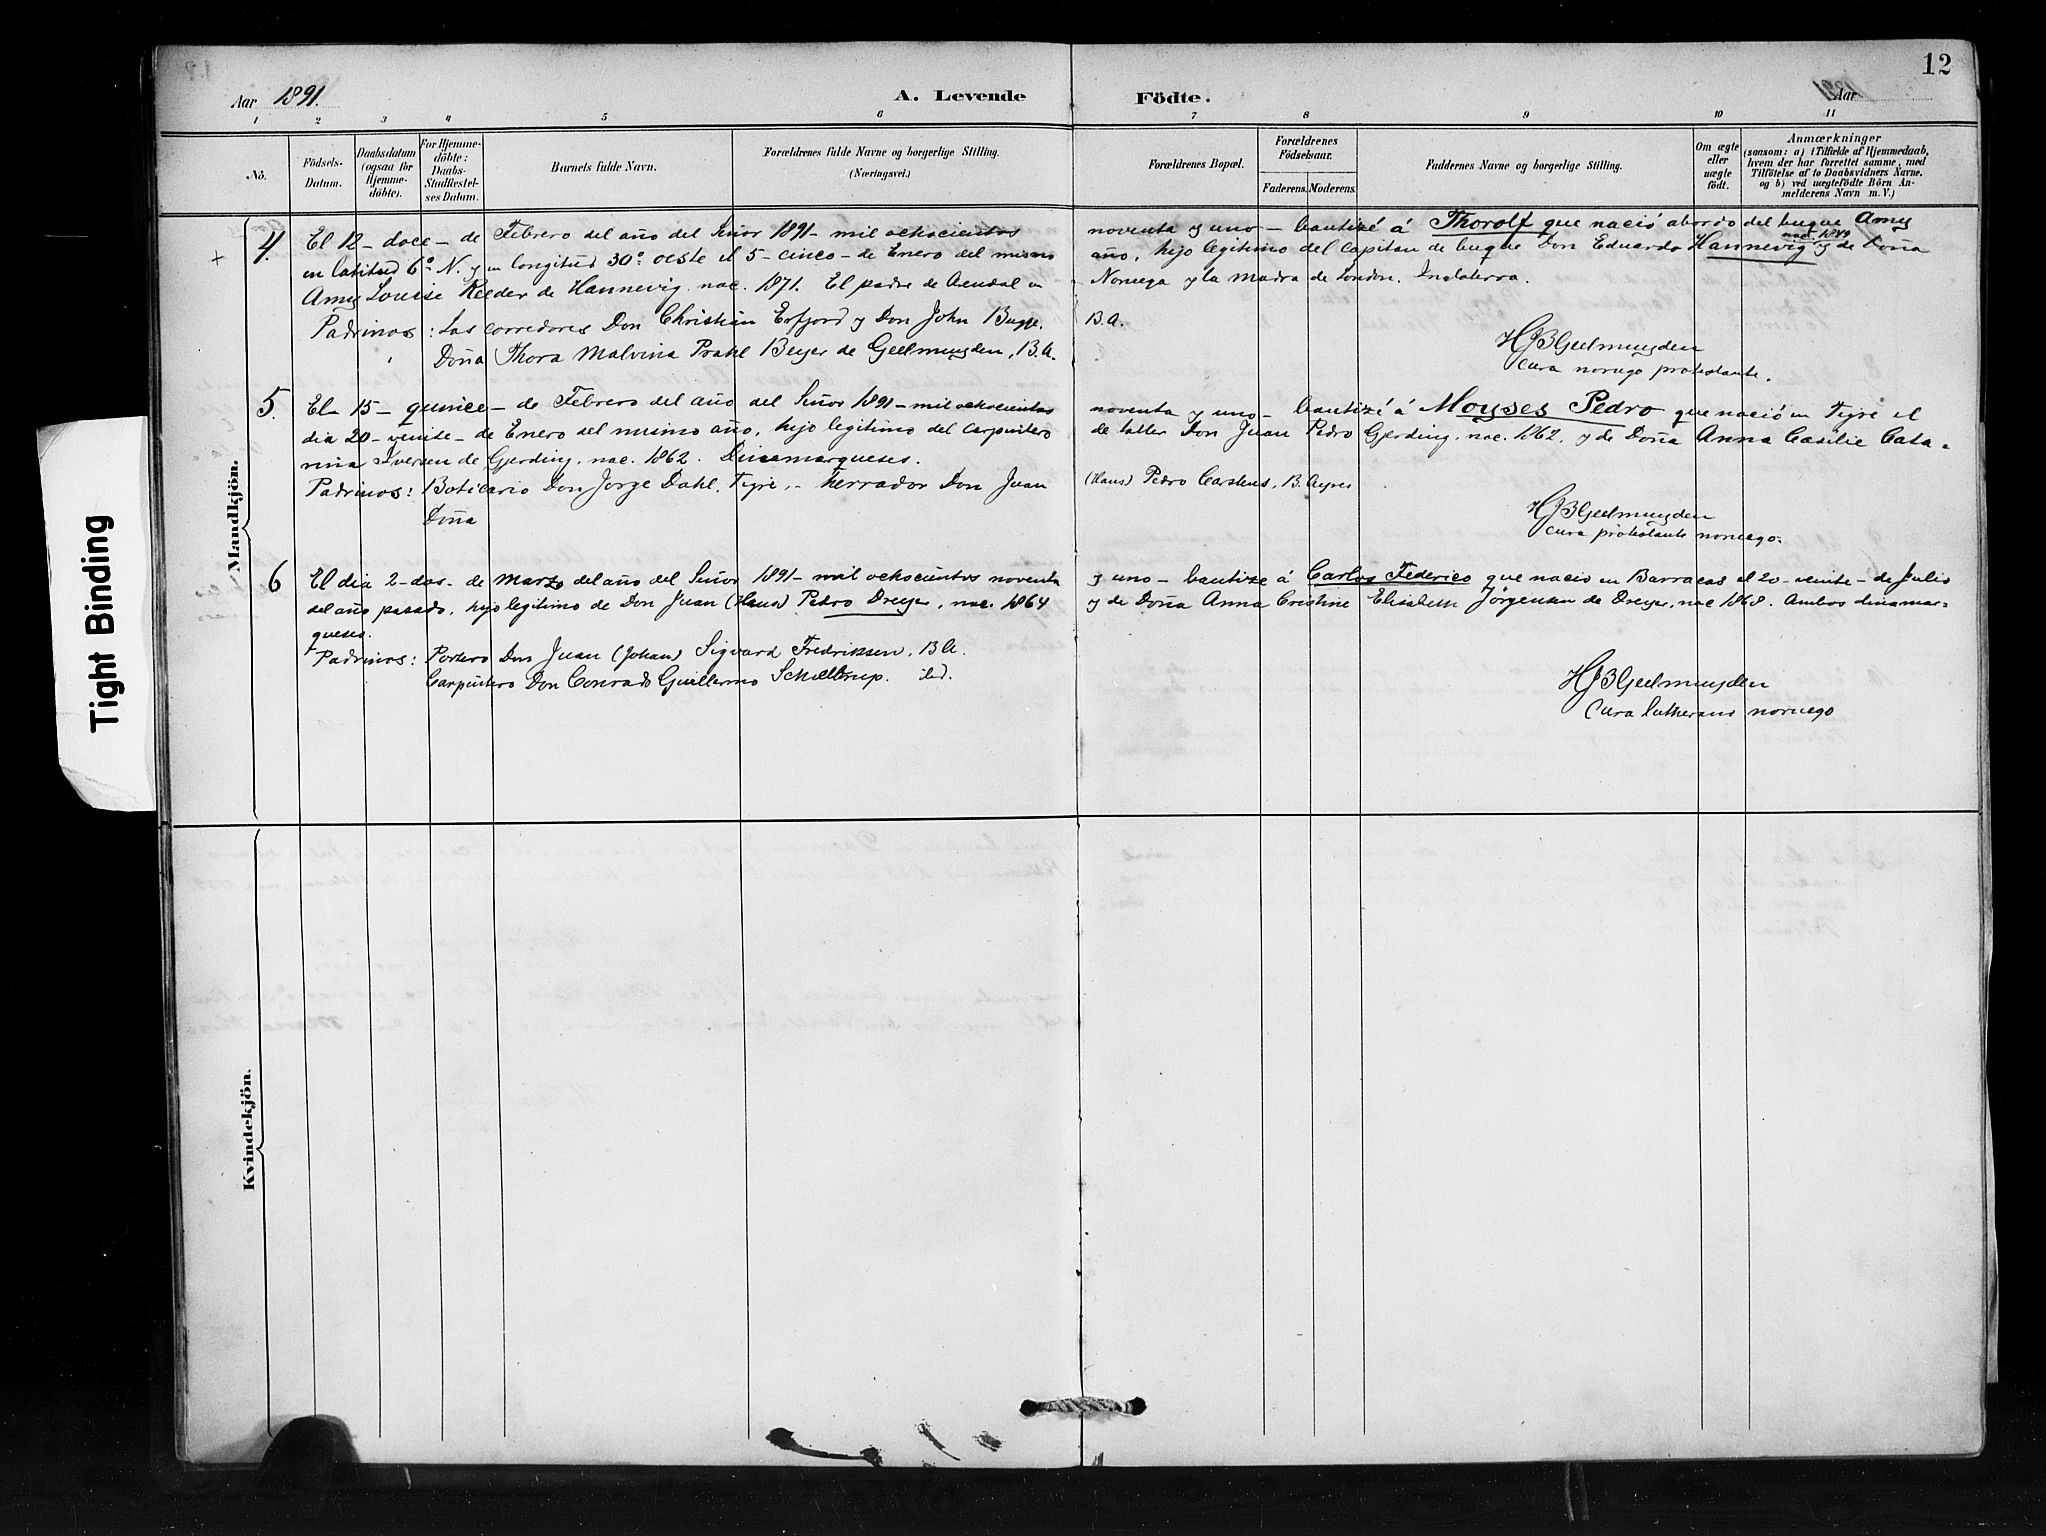 12
Aar 1891.
A. Levende Födte.
Aar 1891
1 2 3 4 5 6 7 8 9 10 11
No.
Födsels-Datum.
Daabsdatum (ogsaa for Hjemme-döbte).
For Hjemme-döbte: Daabs-Stadfæstel-ses Datum.
Barnets fulde Navn.
Forældrenes fulde Navne og borgerlige Stilling.
(Næringsvei.)
Forældrenes Bopæl.
Forældrenes Födselsaar.
Faderens. Moderens.
Faddernes Navne og borgerlige Stilling.
Om ægte eller uægte födt.
Anmærkninger
(saasom: a) i Tilfælde af Hjemmedaab, hvem der har forrettet samme, med Tilföielse af to Daabsvidners Navne, og b) ved uægtefödte Börn An-melderens Navn m. V.)
Mandkjön.
+ 4. El 12 - doce - de Febrero del año del Señor 1891 - mil ochocientos noventa y uno - bautizé á Thorolf que nació abordo del buque Amy
nac. 1849
en latitud 6° N. y en longitud 30° oeste el 5 - cinco - de Enero del mismo año, hijo legitimo del capitan de buque Don Eduardo Hannevig y de Doña
Amy Louise Reeder de Hannevig. nac. 1871. El padre de Arendal en Noruega y la madra de London. Inglaterra.
Padrinos: Los corredores Don Christian Erfjord y Don John Bugge. B.A.
Doña Thora Malvina Prahl Beyer de Geelmuyden, B.A.
HJBGeelmuyden
Cura noruego protestante.
5. El 15 - quince - de Febrero del año del Señor 1891 - mil ochocientos noventa y uno - bautizé á Moyses Pedro que nació en Tigre el
dia 20 - veinte - de Enero del mismo año, hijo legitimo del carpintero de taller Don Juan Pedro Gjerding, nac. 1862. y de Doña Anna Casilie Cata-
rina Iversen de Gjerding, nac. 1862. Dinamarqueses.
Padrinos: Boticario Don Jorge Dahl, Tigre, - herrador Don Juan (Hans) Pedro Carstens, B. Ayres
Doña
HJBGeelmuyden
cura protestante noruego.
6 El dia 2 - dos - de Marzo del año del Señor 1891 - mil ochocientos noventa y uno - bautize á Carlos Federico que nacio en Barracas el 20 - veinte - de Julio
del año pasado, hijo legitimo de Don Juan (Hans) Pedro Dreyer, nac. 1864 y de Doña Anna Cristine Elisabeth Jørgensen de Dreyer, nac 1868. Ambos dinamar-
queses.
Padrinos: Portero Don Juan (Johan) Sigvard Fredriksen, B A.
Carpintero Don Conrado Guillermo Schelltrup. ibd.
HJBGeelmuyden
Cura lutherano noruego
Kvindekjön.
Tight Binding